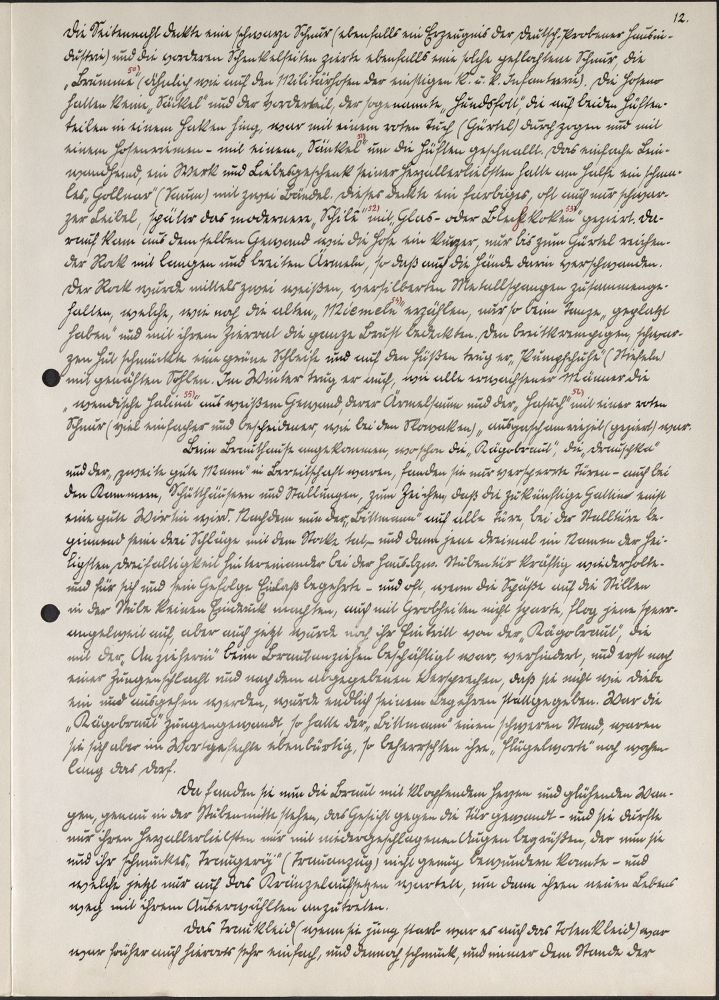 12.
Die Seitennaht deckte eine schwarze Schnur (ebenfalls ein Erzeugnis der Deutsch-Probener Hausin-
dustrie) und die vorderen Schenkelseiten zierte ebenfalls eine solche geflochtene Schnur, die
„Brumme" 50) (ähnlich wie auf den Militärhosen der einstigen K. u. K. Infanterie). Die Hosen
hatten keine „Säckel" und der Vorderteil, der sogenannte „Hundsfott", die auf beiden Hüften-
teilen in einem Haken hing, war mit einem roten Tuch (Gürtel) durchzogen und mit
einem Hosenriemen - mit einem „Säckel" 51) um die Hüften geschnallt. Das einfache Lein-
wandhemd, ein Werk und Liebesgeschenk seiner Herzallerliebsten hatte am Halse ein schma-
les „Gollner" (Saum) mit zwei Bändel. Dieses deckte ein farbiges, oft auch nur schwar-
zer Leibel, später das modernere „Schilé" 52) mit „Glas- oder Blechkoken" 53) geziert. Da-
rauf kam aus demselben Gewand wie die Hose ein kurzer, nur bis zum Gürtel reichen-
der Rock mit langen und breiten Ärmeln, so daß auch die Hände darin verschwanden.
Der Rock wurde mittels zwei weißen, versilberten Metallspangen zusammenge-
halten, welche, wie noch die alten „Miemeln" 54) erzählen, nur so beim Tanze „geglatzt
haben" und mit ihrem Zierrat die ganze Brust bedeckten. Den breitkrempigen, schwar-
zen Hut schmückte eine grüne Schleife und auf den Füßen trug er „Pumpschuhe" (Stiefeln)
mit genähten Sohlen. Im Winter trug er auch, wie alle erwachsener Männer die
„wendische Halina" 55) aus weißem Gewand deren Ärmelsaum und der „Hasuch" 56) mit einer roten
Schnur (viel einfacher und bescheidener, wie bei den Slowaken) „ausgaschameriert" (geziert) war.
Beim Brauthause angekommen, wo schon die „Rägobraut", die „Drauschka"
und der „zweite gute Mann" in Bereitschaft waren, fanden sie nur versperrte Türen - auch bei
den Kammern, Schütthäusern und Stallungen, zum Zeichen, daß die zukünftige Gattin einst
eine gute Wirtin wird. Nachdem nun der „Bittmann" auf alle Türe, bei der Stalltüre be-
ginnend seine drei Schläge mit dem Stocke tat - und dann jene dreimal im Namen der Hei-
ligsten Dreifaltigkeit hintereinander bei der Haus- bzw. Stubentür kräftig wiederholte -
und für sich und sein Gefolge Einlaß begehrte - und oft, wenn die Späße auf die Stillen
in der Stube keinen Eindruck machten, auch mit Grobheiten nicht sparte, flog jene sperr-
angelweit auf, aber auch jetzt wurde noch ihr Eintritt von der „Rägobraut", die
mit der „Anzieherin" beim Brautanziehen beschäftigt war, verhindert, und erst nach
einer Zungenschlacht und nach dem abgegebenen Versprechen, daß sie nicht wie Diebe
ein und ausgehen werden, wurde endlich seinem Begehren stattgegeben. War die
„Rägobraut" zungengewandt, so hatte der „Bittmann" einen schweren Stand, waren
sie sich aber im Wortgefechte ebenbürtig, so beherrschten ihre „Flügelworte" noch wochen-
lang das Dorf.
Da fanden sie nun die Braut mit klopfendem Herzen und glühenden Wan-
gen, genau in der Stubenmitte stehen, das Gesicht gegen die Tür gewandt - und sie durfte
nur ihren Herzallerliebsten nur mit niedergeschlagenen Augen begrüßen, der nun sie
und ihr schmuckes „Traugerüj" (Trauanzug) nicht genug bewundern konnte - und
welche jetzt nur auf das Kränzelaufsetzen wartete, um dann ihren neuen Lebens
weg mit ihrem Auserwählten anzutreten.
Das Traukleid (wenn sie jung starb war es auch das Totenkleid) war
war früher auch hierorts sehr einfach, und dennoch schmuck, und immer dem Stande der